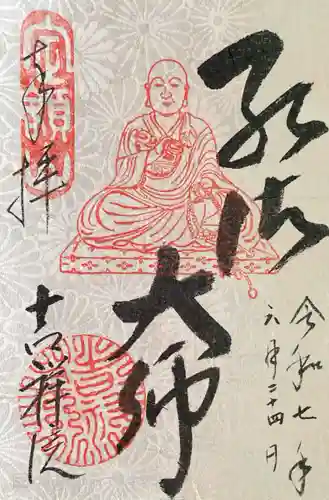 令和七年
六月二十四日
弘法大師
奉拝
吉祥院